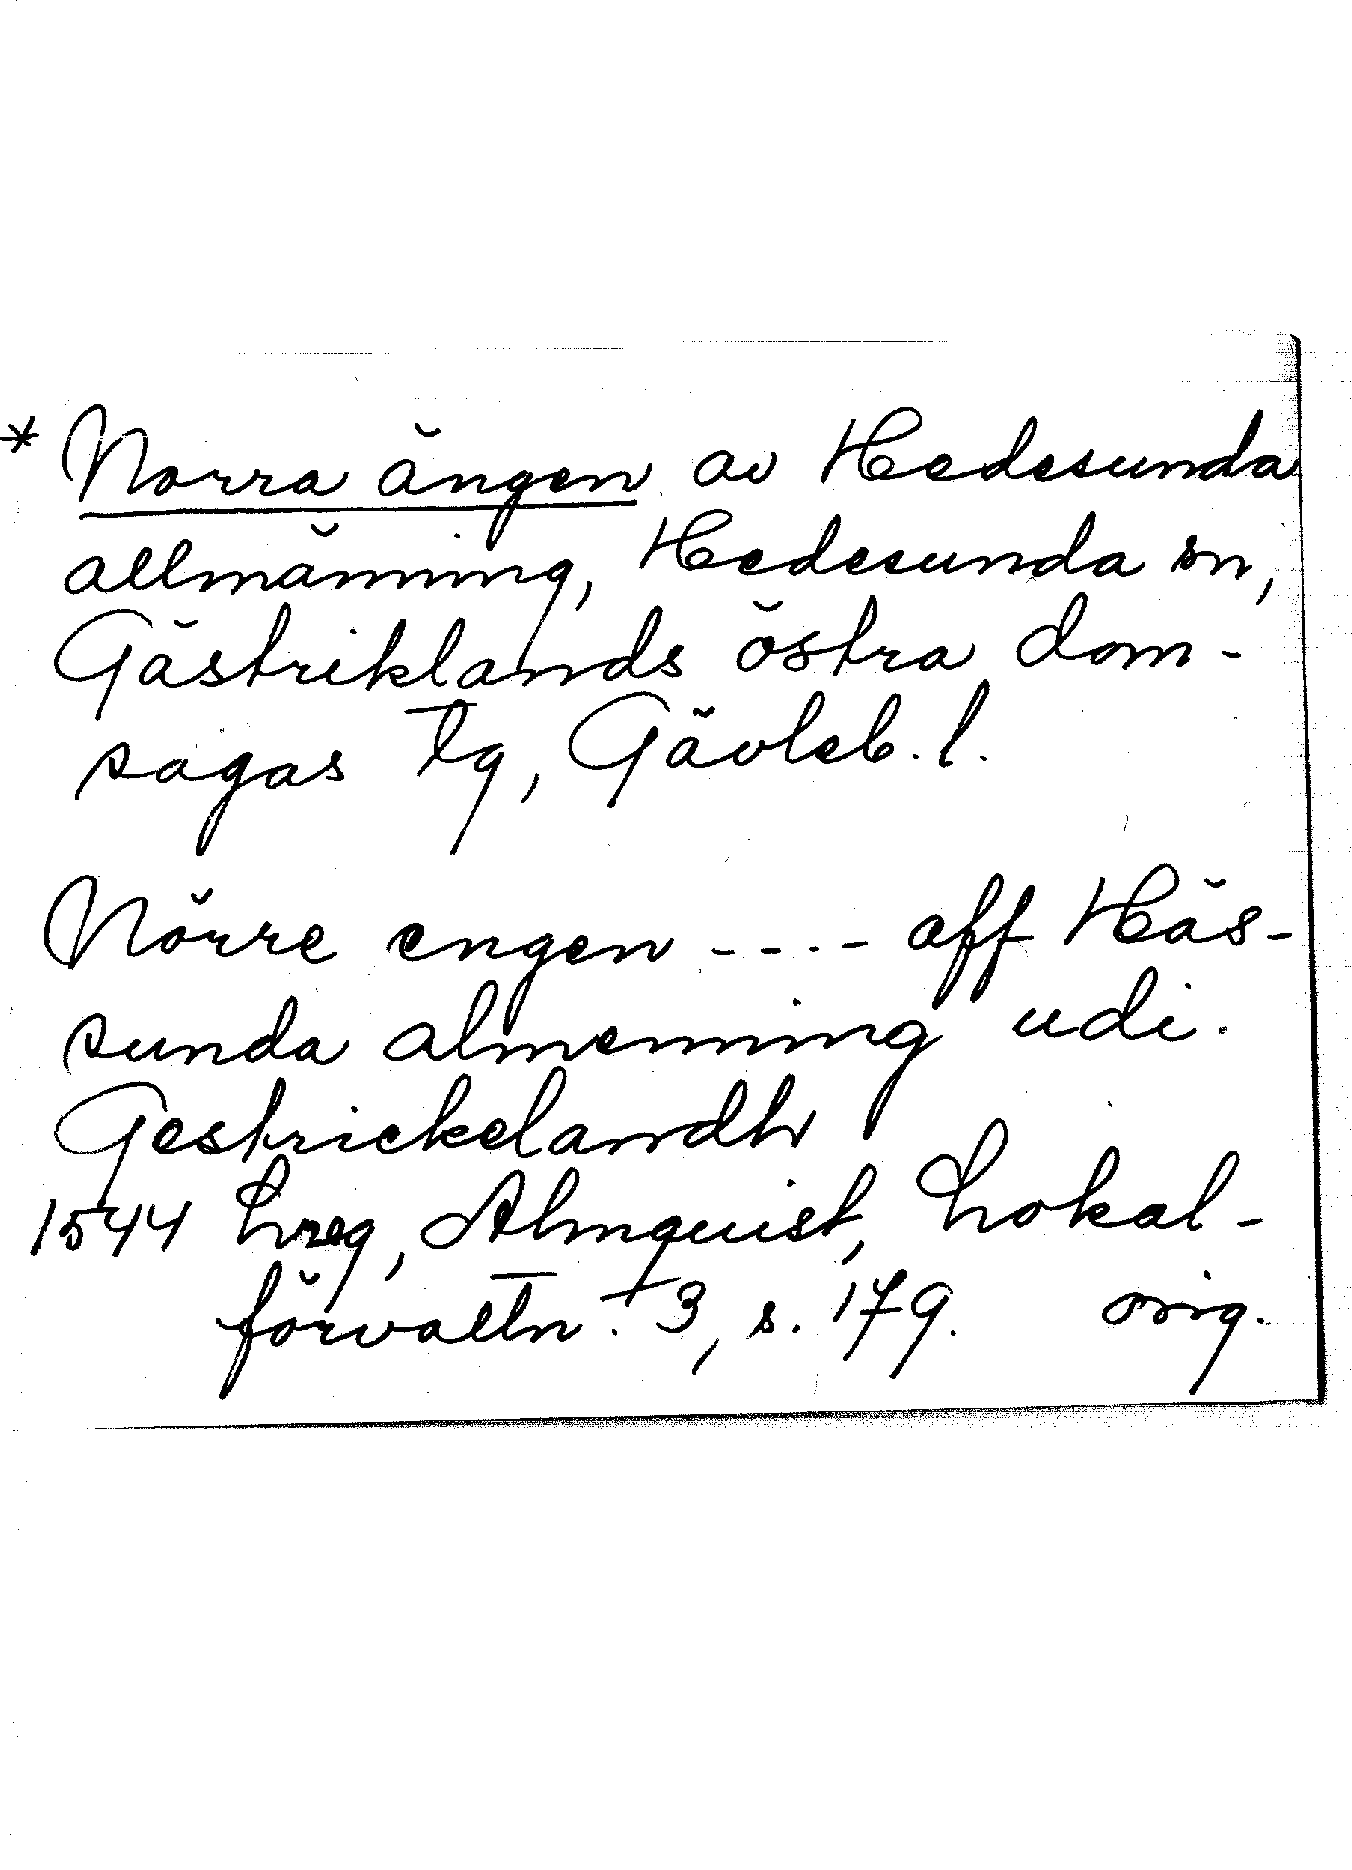 * Norra ängen av Hedesunda
allmänning, Hedesunda sn,
Gästriklands östra dom-
sagas tg, Gävleb. l.
Nörre engen ---- aff Häs-
sunda almenning udi.
Gestrickelandh
1544 Lreg, Almquist, Lokal-
förvaltn. 3, s. 179. orig.